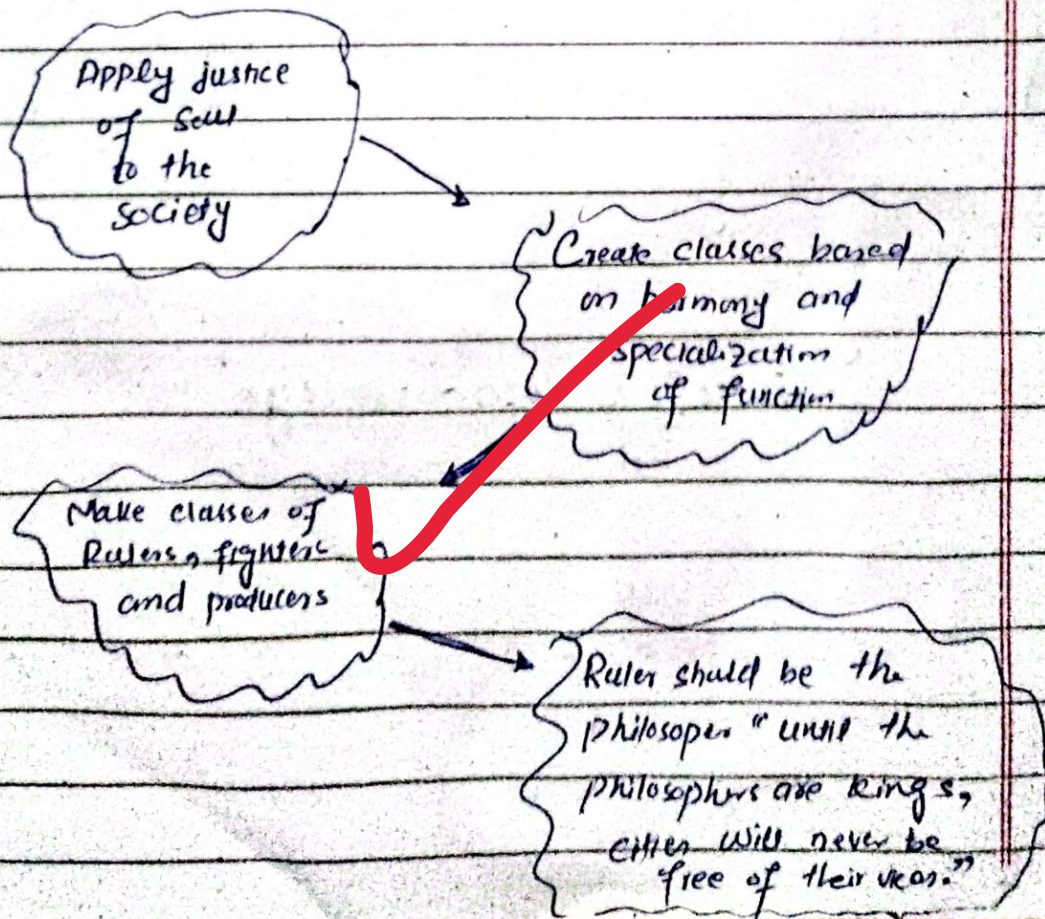 Apply justice
of soul
to the
society
Create classes based
on harmony and
specialization
of function
Make classes of
Rulers, fighters
and producers
Ruler should be the
philosoper "until the
philosophers are kings,
cities will never be
free of their vices."